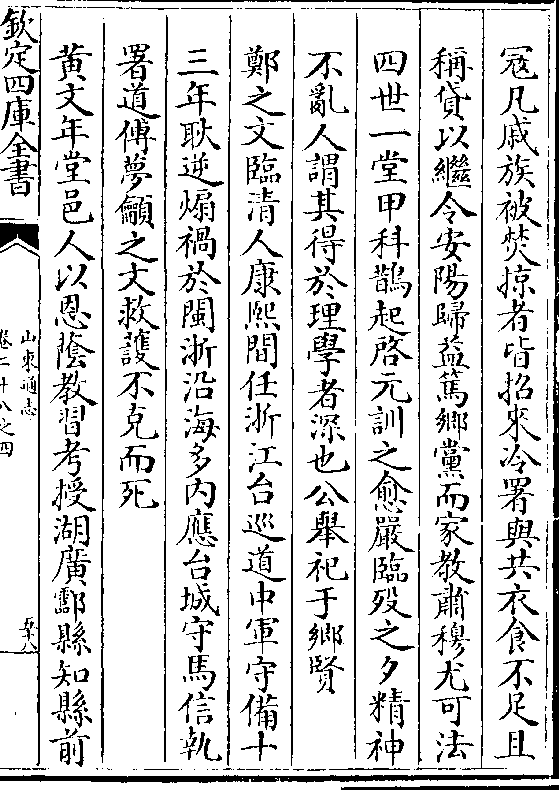 冦凡戚族被焚掠者皆招來冷署與共衣食不足且
稱貸以繼令安陽歸益篤鄉黨而家教肅穆尤可法
四世一堂甲科鵲起啓元訓之愈嚴臨殁之夕精神
不亂人謂其得於理學者深也公舉祀于鄉賢
鄭之文臨清人康熙間任浙江台巡道中軍守備十
三年耿逆煽禍於閩浙沿海多内應台城守馬信執
署道傅夢籲之文救護不克而死
黄文年堂邑人以恩蔭教習考授湖廣酃縣知縣前
欽定四庫全書
山東通志
卷二十八之四
五十八